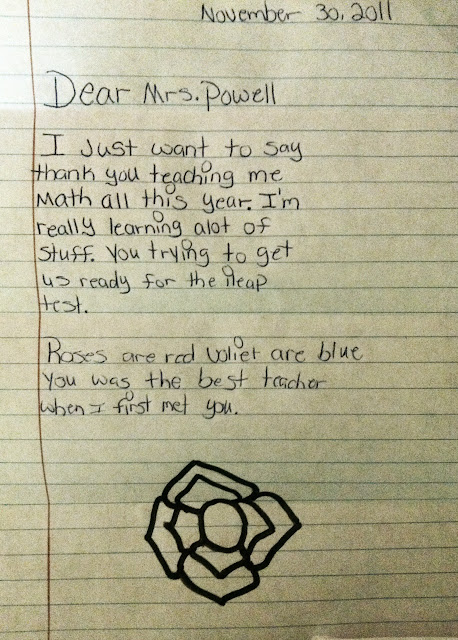 November 30, 2011
Dear Mrs. Powell
I Just want to say
thank you teaching me
Math all this year. I'm
really learning alot of
stuff. You trying to get
us ready for the ileap
test.
Roses are red Voliet are blue
You was the best teacher
when I first met you.